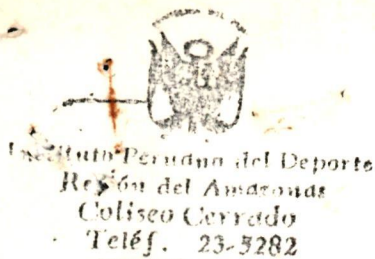 REPUBLICA DEL PERU
Instituto Peruano del Deporte
Región del Amazonas
Coliseo Cerrado
Teléf. 23-5282